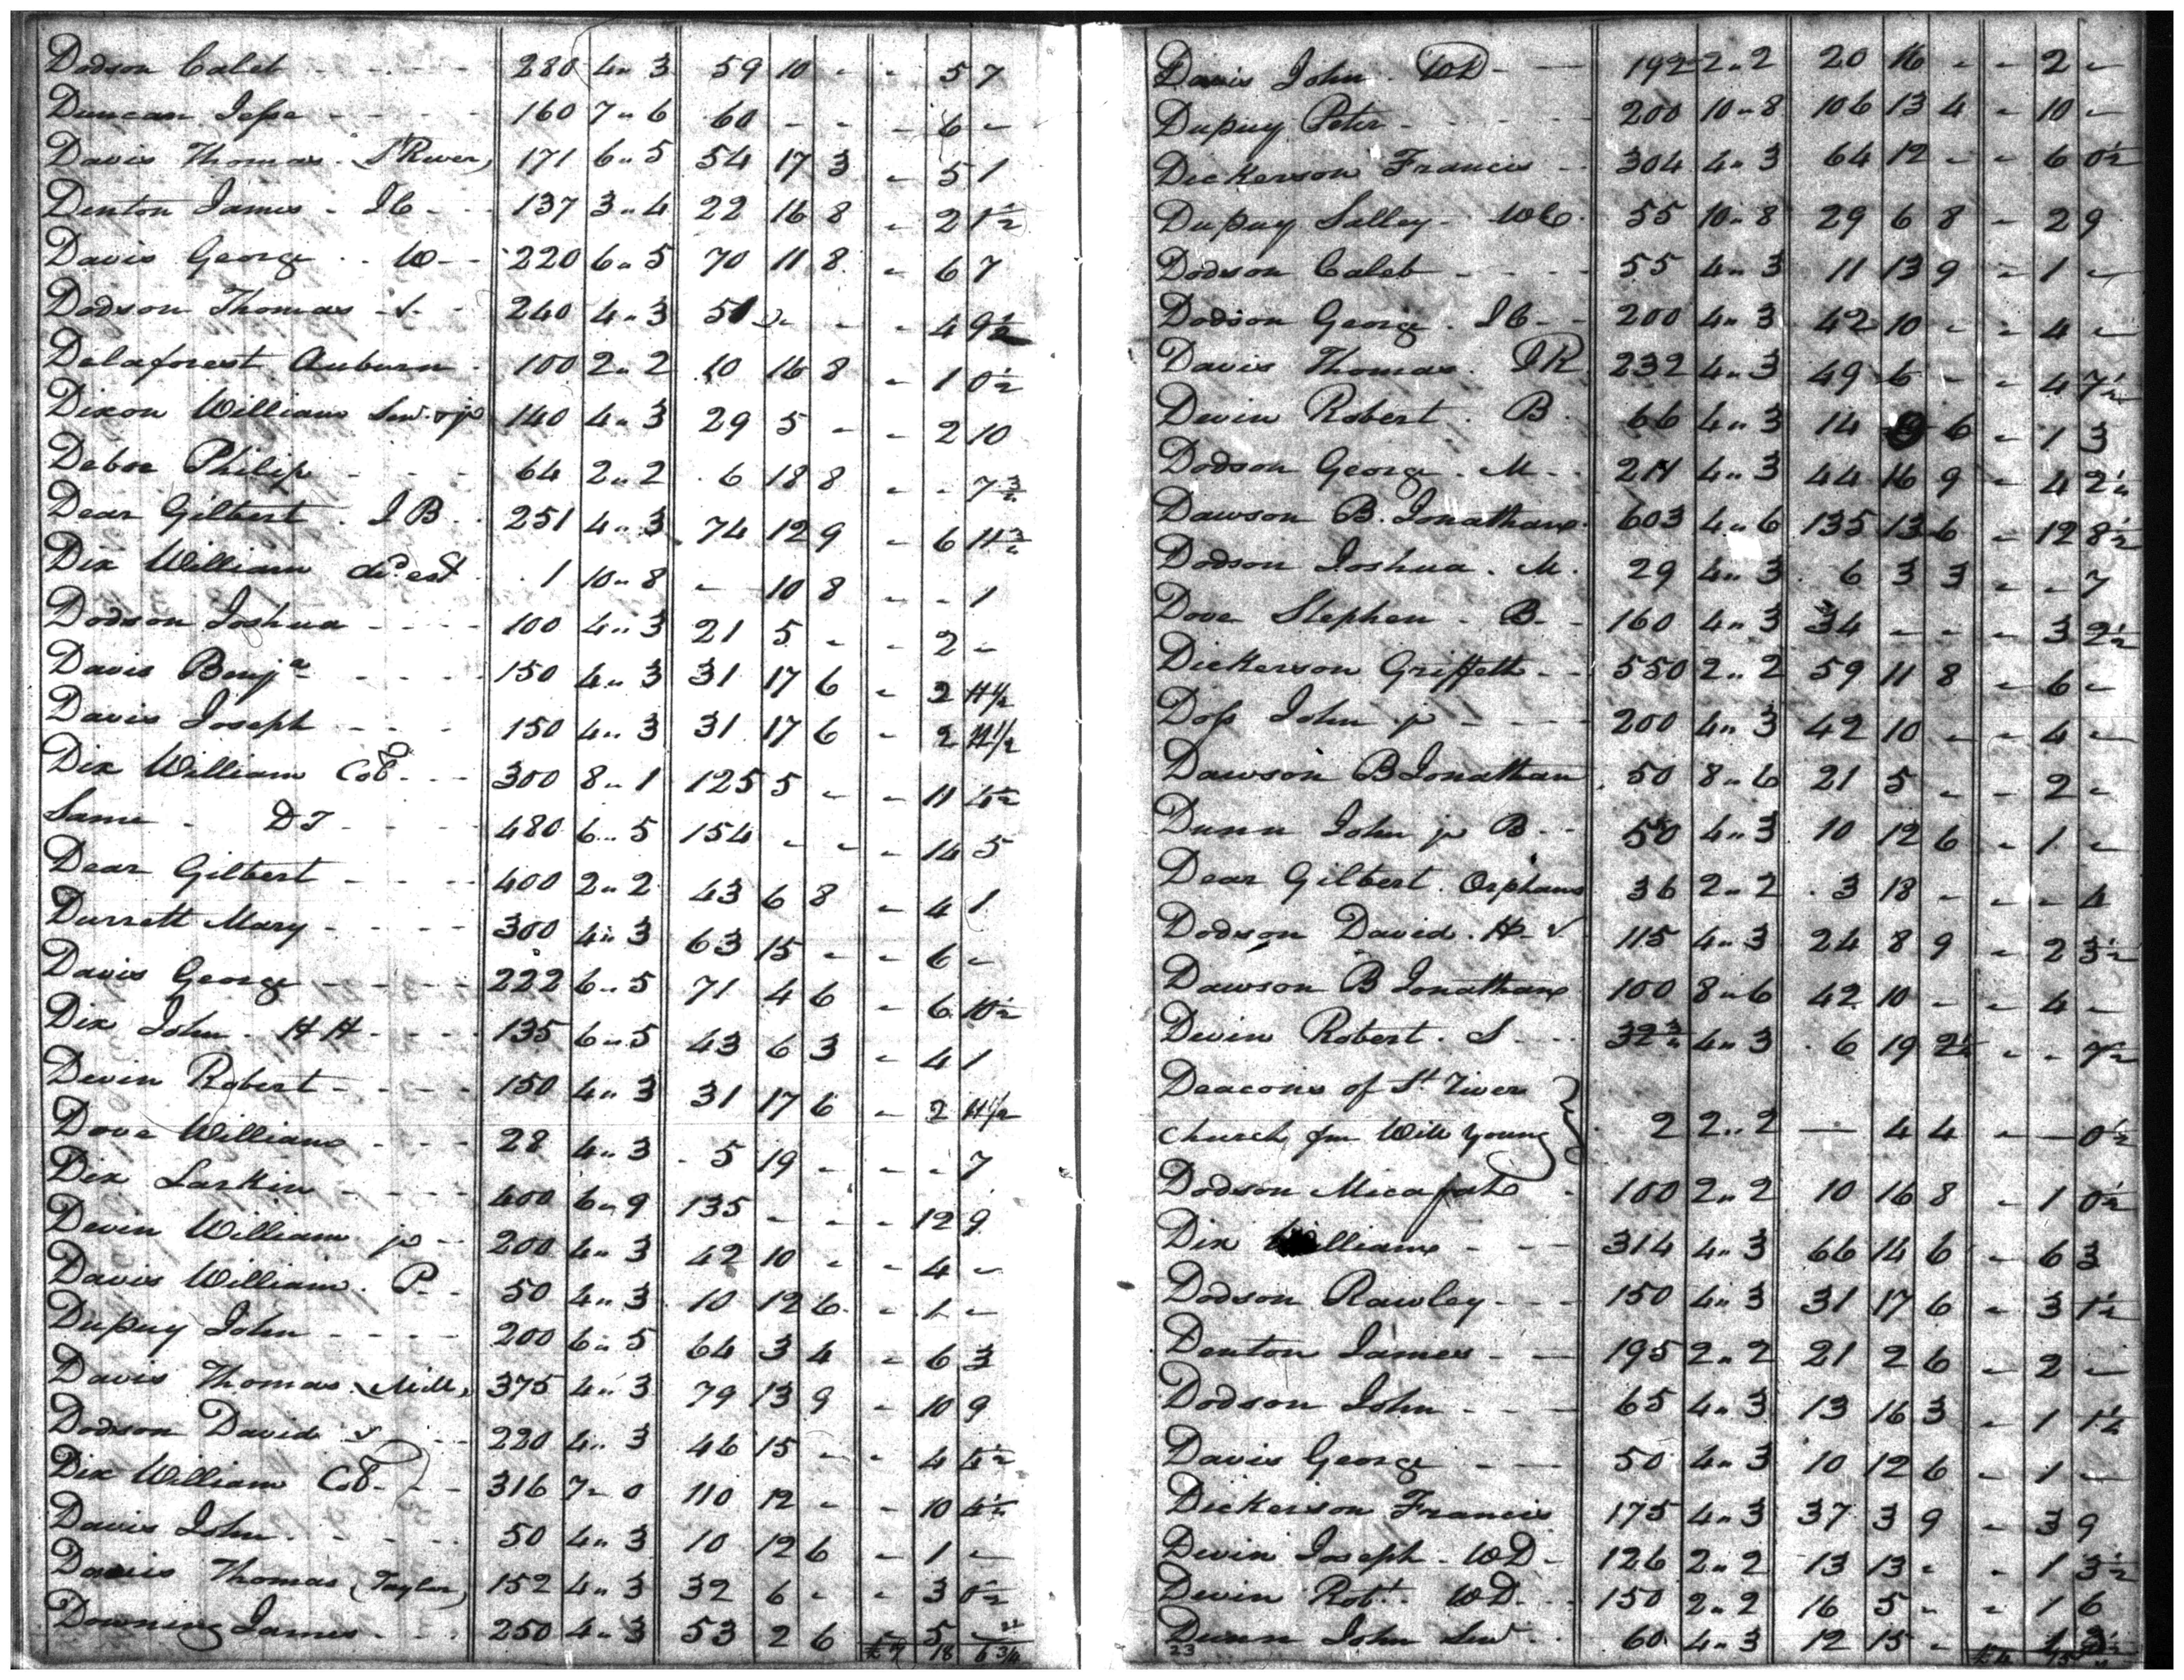 Dodson Caleb - - - - 280 4 " 3 59 10 - - 5 7
Duncan Jesse - - - - 160 7 " 6 60 - - - 6 -
Davis Thomas (S River) 171 6 " 5 54 17 3 - 5 1
Denton James - IC - - 137 3 " 4 22 16 8 - 2 1½
Davis George - - W - - 220 6 " 5 70 11 8 - 6 7
Dodson Thomas - S - - 240 4 " 3 51 - - - 4 9½
Delaforest Auburn - 100 2 " 2 10 16 8 - 1 0½
Dixon William Senr & jr 140 4 " 3 29 5 - - 2 10
Deboe Philip - - - 64 2 " 2 6 18 8 - - 7¾
Dear Gilbert . I B . 251 4 " 3 74 12 9 - 6 11¾
Dix William do est . 1 10 " 8 - 10 8 - - 1
Dodson Joshua - - - - 100 4 " 3 21 5 - - 2 -
Davis Benja - - - - 150 4 " 3 31 17 6 - 2 11½
Davis Joseph - - - 150 4 " 3 31 17 6 - 2 11½
Dix William Col - - - 300 8 " 1 125 5 - - 11 4½
Same - DT - - - - 480 6 " 5 154 - - - 14 5
Dear Gilbert - - - - 400 2 " 2 43 6 8 - 4 1
Durrett Mary - - - - 300 4 " 3 63 15 - - 6 -
Davis George - - - - 222 6 " 5 71 4 6 - 6 10½
Dix John . HH - - - 135 6 " 5 43 6 3 - 4 1
Devin Robert - - - - 150 4 " 3 31 17 6 - 2 11½
Dove William - - - 28 4 " 3 5 19 - - - 7
Dix Larkin - - - - 400 6 " 9 135 - - - 12 9
Devin William jr - 200 4 " 3 42 10 - - 4 -
Davis William . P - - 50 4 " 3 10 12 6 - 1 -
Dupuy John - - - - 200 6 " 5 64 3 4 - 6 3
Davis Thomas (Mill) 375 4 " 3 79 13 9 - 10 9
Dodson David S - - 220 4 " 3 46 15 - - 4 4½
Dix William Col - - - 316 7 - 0 110 12 - - 10 4½
Davis John - - - - 50 4 " 3 10 12 6 - 1 -
Davis Thomas (Taylor) 152 4 " 3 32 6 - - 3 0½
Downing James - - - 250 4 " 3 53 2 6 5 -
£7 18 6¾
Davis John . WD - - 192 2 " 2 20 16 - - 2 -
Dupuy Peter - - - - 200 10 " 8 106 13 4 - 10 -
Dickerson Francis - 304 4 " 3 64 12 - - 6 0½
Dupuy Salley - WC . 55 10 " 8 29 6 8 - 2 9
Dodson Caleb - - - - 55 4 " 3 11 13 9 - 1 -
Dodson George . IC - - 200 4 " 3 42 10 - - 4 -
Davis Thomas . IR 232 4 " 3 49 6 - - 4 7½
Devin Robert . B . 66 4 " 3 14 6 - 1 3
Dodson George . M - . 211 4 " 3 44 16 9 - 4 2½
Dawson B. Jonathan 603 4 " 6 135 13 6 - 12 8½
Dodson Joshua . M . 29 4 " 3 6 3 3 - - 7
Dove Stephen - B - - 160 4 " 3 34 - - - 3 2½
Dickerson Griffeth - - 550 2 " 2 59 11 8 - 6 -
Doss John jr - - - - 200 4 " 3 42 10 - - 4 -
Dawson B Jonathan 50 8 " 6 21 5 - - 2 -
Dunn John jr B - - 50 4 " 3 10 12 6 - 1 -
Dear Gilbert . Orphans 36 2 " 2 3 18 - - - 4
Dodson David . H - 115 4 " 3 24 8 9 - 2 3½
Dawson B Jonathan 100 8 " 6 42 10 - - 4 -
Devin Robert . S - - - 32¾ 4 " 3 6 19 2½ - - 7½
Deacons of St River
Church fm Will Young 2 2 " 2 — 4 4 - — 0½
Dodson Micajah . 100 2 " 2 10 16 8 - 1 0½
Dix William - - - 314 4 " 3 66 14 6 - 6 3
Dodson Rawley - - - 150 4 " 3 31 17 6 - 3 1½
Denton James - - 195 2 " 2 21 2 6 - 2 -
Dodson John - - - 65 4 " 3 13 16 3 - 1 1½
Davis George - - - 50 4 " 3 10 12 6 - 1 -
Dickerson Francis 175 4 " 3 37 3 9 - 3 9
Devin Joseph - WD - 126 2 " 2 13 13 - - 1 3½
Devin Robt . WD - - 150 2 " 2 16 5 - - 1 6
Dunn John Senr . . 60 4 " 3 12 15 - 1
23